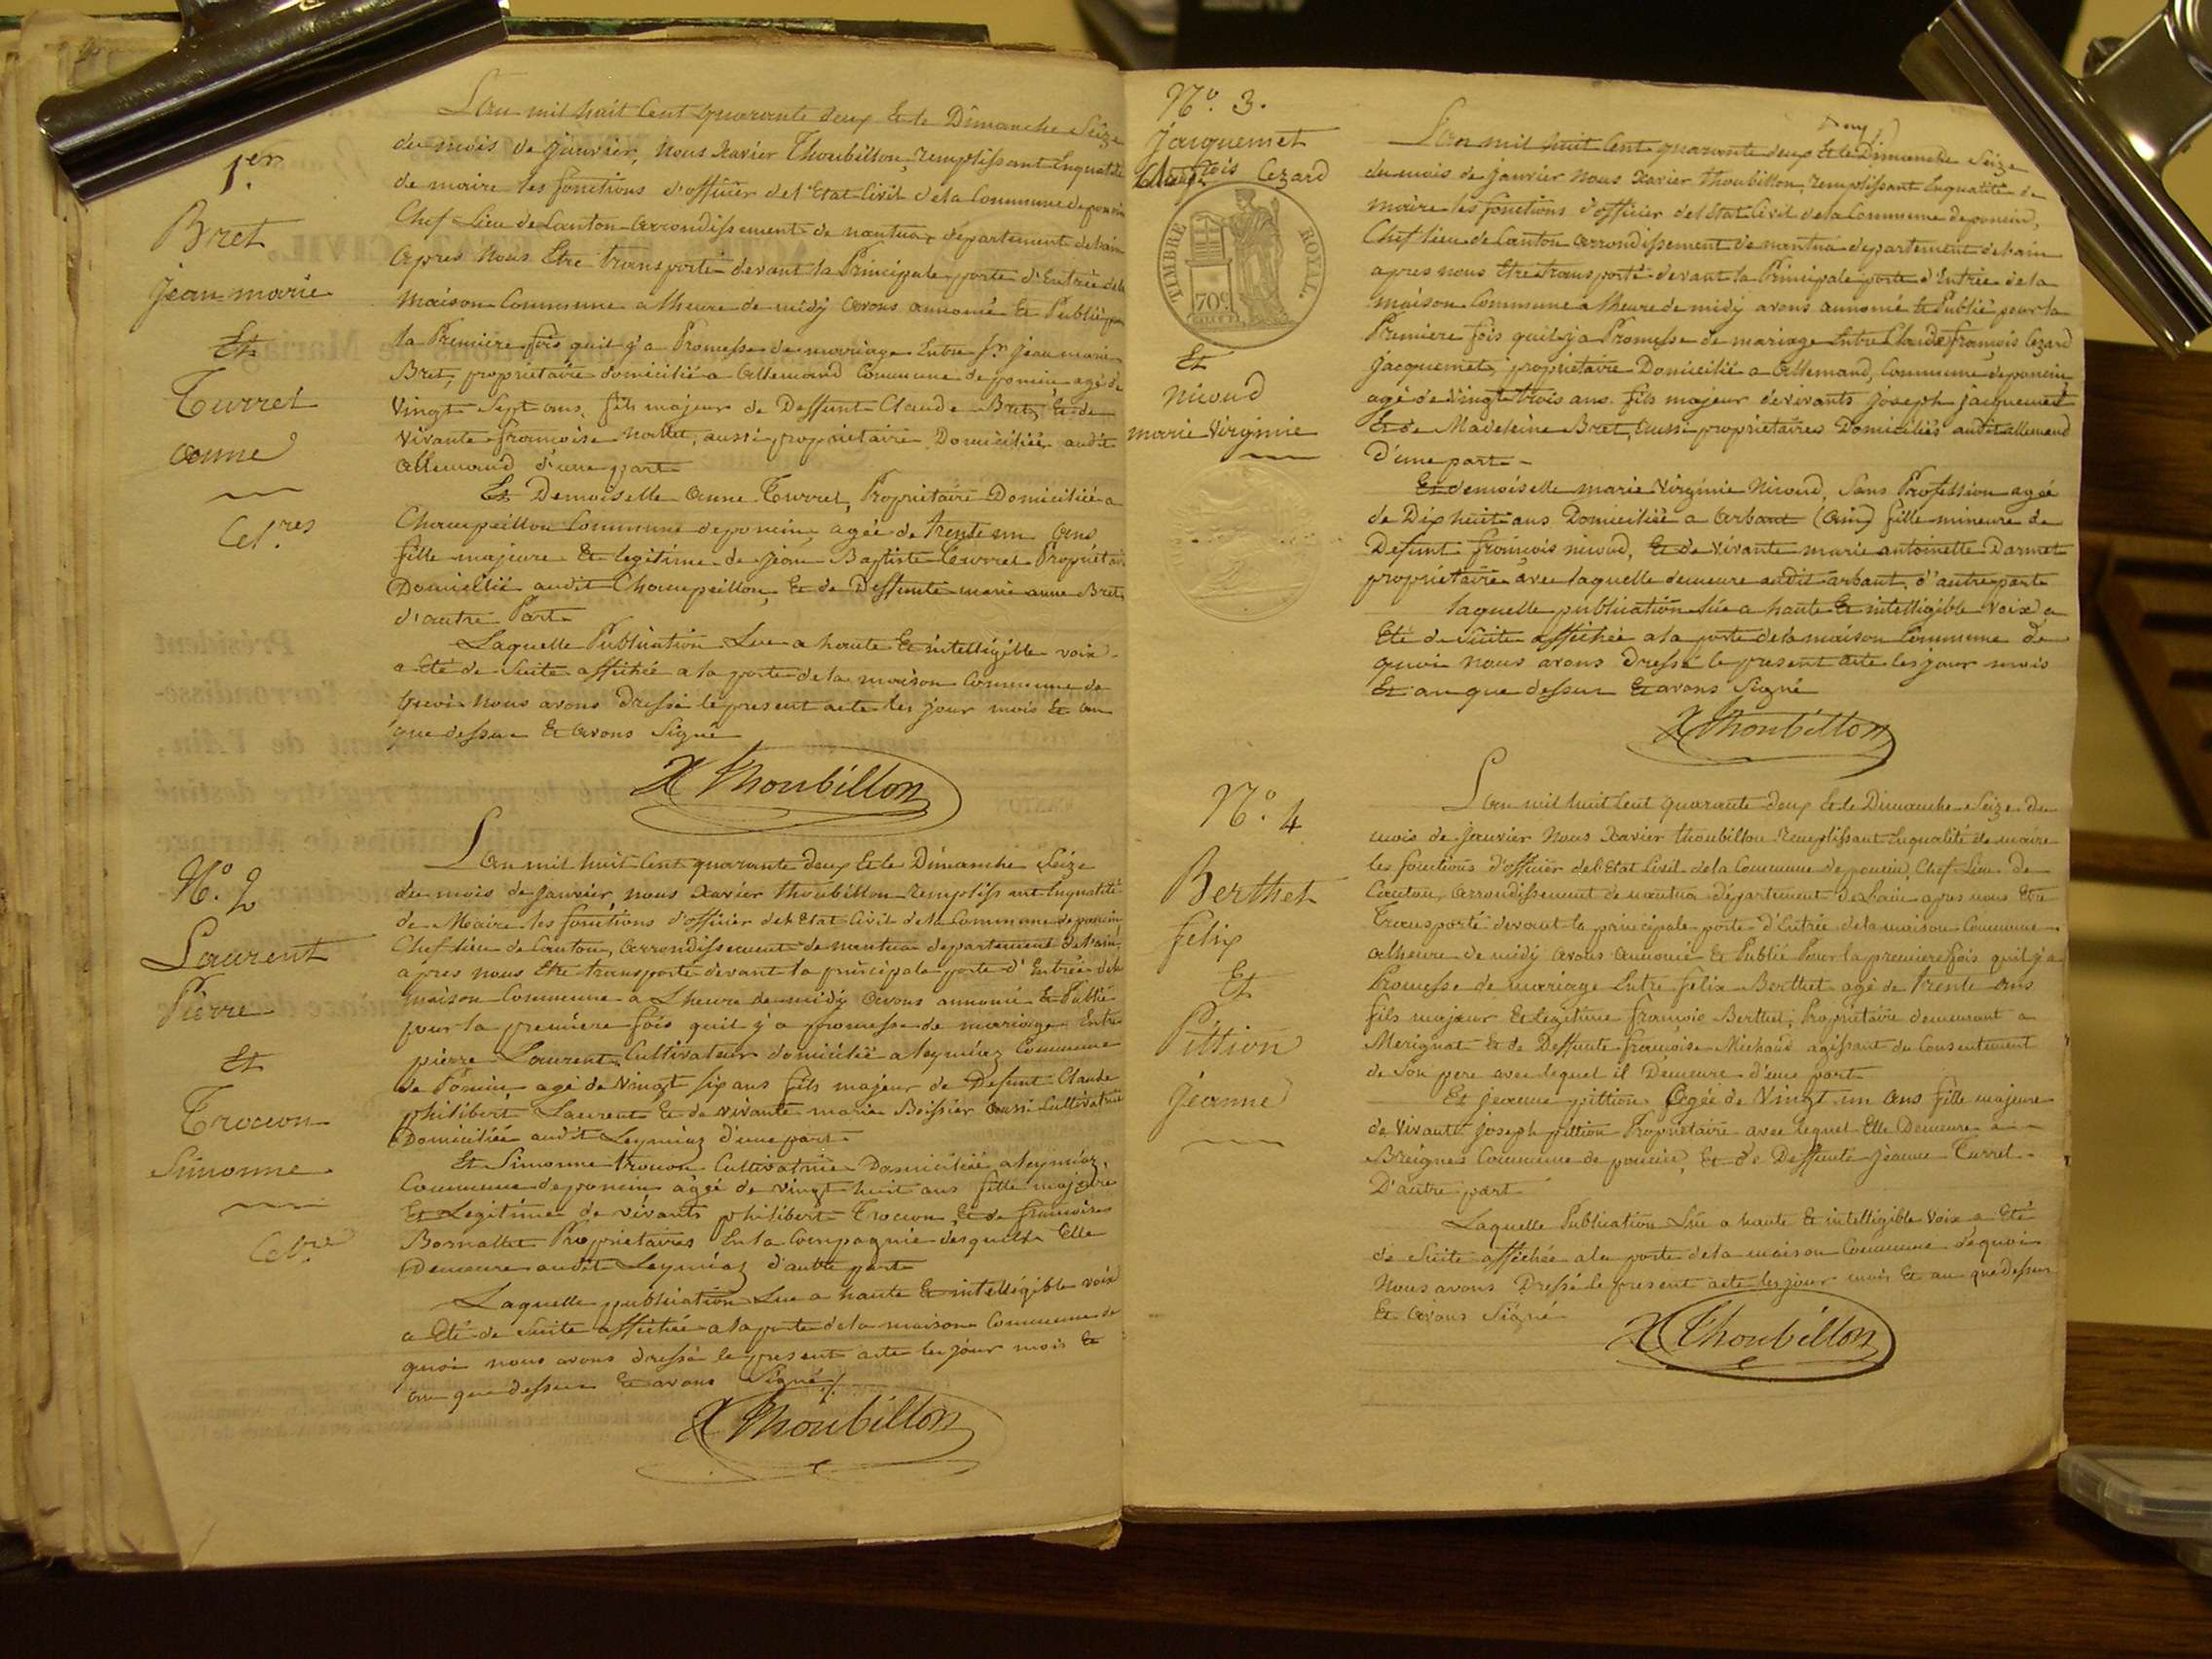 1.er
Bret
jean marie
Et
Turrel
anne
Cel.res
L'an mil huit Cent quarante deux Et le Dimanche Seize
du mois de Janvier, Nous Xavier Thoubillon, remplissant Enqualité
de maire les fonctions d'officier del'Etat Civil dela Commune de poncin
Chef Lieu de Canton arrondissement de nantua, département delain
apres Nous Etre transporté devant la Principale porte d'Entrée dela
maison Commune a lheure de midy avons annoncé Et Publié pour
la Premiere fois quil y'a Promesse de marriage Entre sr jean marie
Bret, proprietaire domicilié a allemand Commune de poncin agé de
Vingt Sept ans, fils majeur de Deffunt Claude Bret, Et de
vivante françoise nallet, aussi proprietaire Domiciliée audit
allemand d'une part
Et Demoiselle anne Turrel, Propriétaire Domiciliée a
Champeillon Commune de poncin, agée de trente un ans
fille majeure Et legitime de jean Baptiste Turrel Propriétaire
Domicilié audit Champeillon, Et de Deffunte marie anne Bret
d'autre Part
Laquelle Publication Lue a haute Et intelligible voix
a Eté de Suite affichée a la porte dela maison Commune de
quoi Nous avons Dressé le present acte les jour mois Et an
que dessus Et avons Signé
X Thoubillon
N.o 2
Laurent
Pierre
Et
Trocon
Simonne
Cel.re
L'an mil huit Cent quarante deux Et le Dimanche Seize
du mois de Janvier, nous Xavier thoubillon remplissant Enqualité
de Maire les fonctions d'officier del Etat Civil dela Commune de poncin
Chef lieu de Canton, arrondissement de nantua departement delain,
apres nous Etre transporté devant la principale porte d'Entrée dela
maison Commune a Lheure de midy avons annoncé Et Publié
pour la premiere fois quil y'a promesse de mariage Entre
pierre Laurent, Cultivateur domicilié a leymiaz Commune
de Poncin agé de Vingt six ans fils majeur de Defunt Claude
philibert Laurent Et de vivante marie Boissier aussi Cultivatrice
Domiciliée audit Leymiaz d'une part
Et Simonne trocon Cultivatrice Domiciliée a leymiaz,
Commune de poncin agée de vingt huit ans fille majeure
Et Legitime de vivants philibert Trocon Et de françoise
Bornallet Proprietaires En la Compagnie desquels Elle
Demeure audit Leymiaz d'autre part
Laquelle publication Lue a haute Et intelligible voix
a Eté de Suite affichée a la porte dela maison Commune de
quoi nous avons dressé le present acte les jour mois Et
an que dessus Et avons Signé./.
X Thoubillon
N.o 3.
Jacquemet
Cezard
TIMBRE ROYAL.
70c.
Et
nicoud
marie Virginie
L'an mil huit Cent quarante deux Et le Dimanche Seize
du mois de janvier nous Xavier thoubillon, remplissant Enqualité de
maire les fonctions d'officier del Etat Civil dela Commune de poncin,
Chef lieu de Canton arrondissement de nantua departement delain
apres nous Etre transporté devant la Principale porte d'Entrée dela
maison Commune a lheure de midy avons annoncé Et Publié pour la
Premiere fois quil y'a Promesse de mariage Entre Claude françois Cezard
jacquemet, propriétaire Domicilié a allemand, Commune de poncin
agé de Vingt trois ans fils majeur de vivants joseph jacquemet
Et de Madeleine Bret, aussi proprietaires Domiciliés audit allemand
D'une part
Et demoiselle marie Virginie Nicoud, Sans Profession agée
de Dix huit ans Domiciliée a arbant (ain) fille mineure de
Defunt françois nicoud, Et de vivante marie antoinette Darmet
propriétaire avec laquelle demeure audit arbant, d'autre part
laquelle publication Lue a haute Et intelligible Voix a
Eté de Suite affichée a la porte dela maison Commune de
quoi nous avons dressé le present acte les jour mois
Et an que dessus Et avons Signé
X Thoubillon
N.o 4
Berthet
felix
Et
Pittion
Jeanne
L'an mil huit Cent quarante deux Et le Dimanche Seize du
mois de janvier Nous Xavier thoubillon remplissant Enqualité de maire
les fonctions d'officier del'Etat Civil dela Commune de poncin, Chef Lieu de
Canton, arrondissement de nantua département delain apres nous Etre
Transporté devant la principale porte d'Entrée dela maison Commune
alheure de midy avons annoncé Et Publié Pour la premiere fois quil y'a
Promesse de mariage Entre felix Berthet agé de trente ans
fils majeur Et legitime françois Berthet, Propriétaire demeurant a
Merignat Et de Deffunte françoise Michaud agissant du Consentement
de Son pere avec lequel il Demeure d'une part
Et jeanne pittion agée de Vingt un ans fille majeure
de Vivant joseph pittion Propriétaire avec lequel Elle Demeure a
Breignes Commune de poncin, Et de Deffunte jeanne Turrel
D'autre part
Laquelle Publication Lue a haute Et intelligible Voix a Eté
de Suite affichée a la porte dela maison Commune dequoi
Nous avons Dressé le present acte les jour mois Et an que dessus
Et avons Signé
X Thoubillon